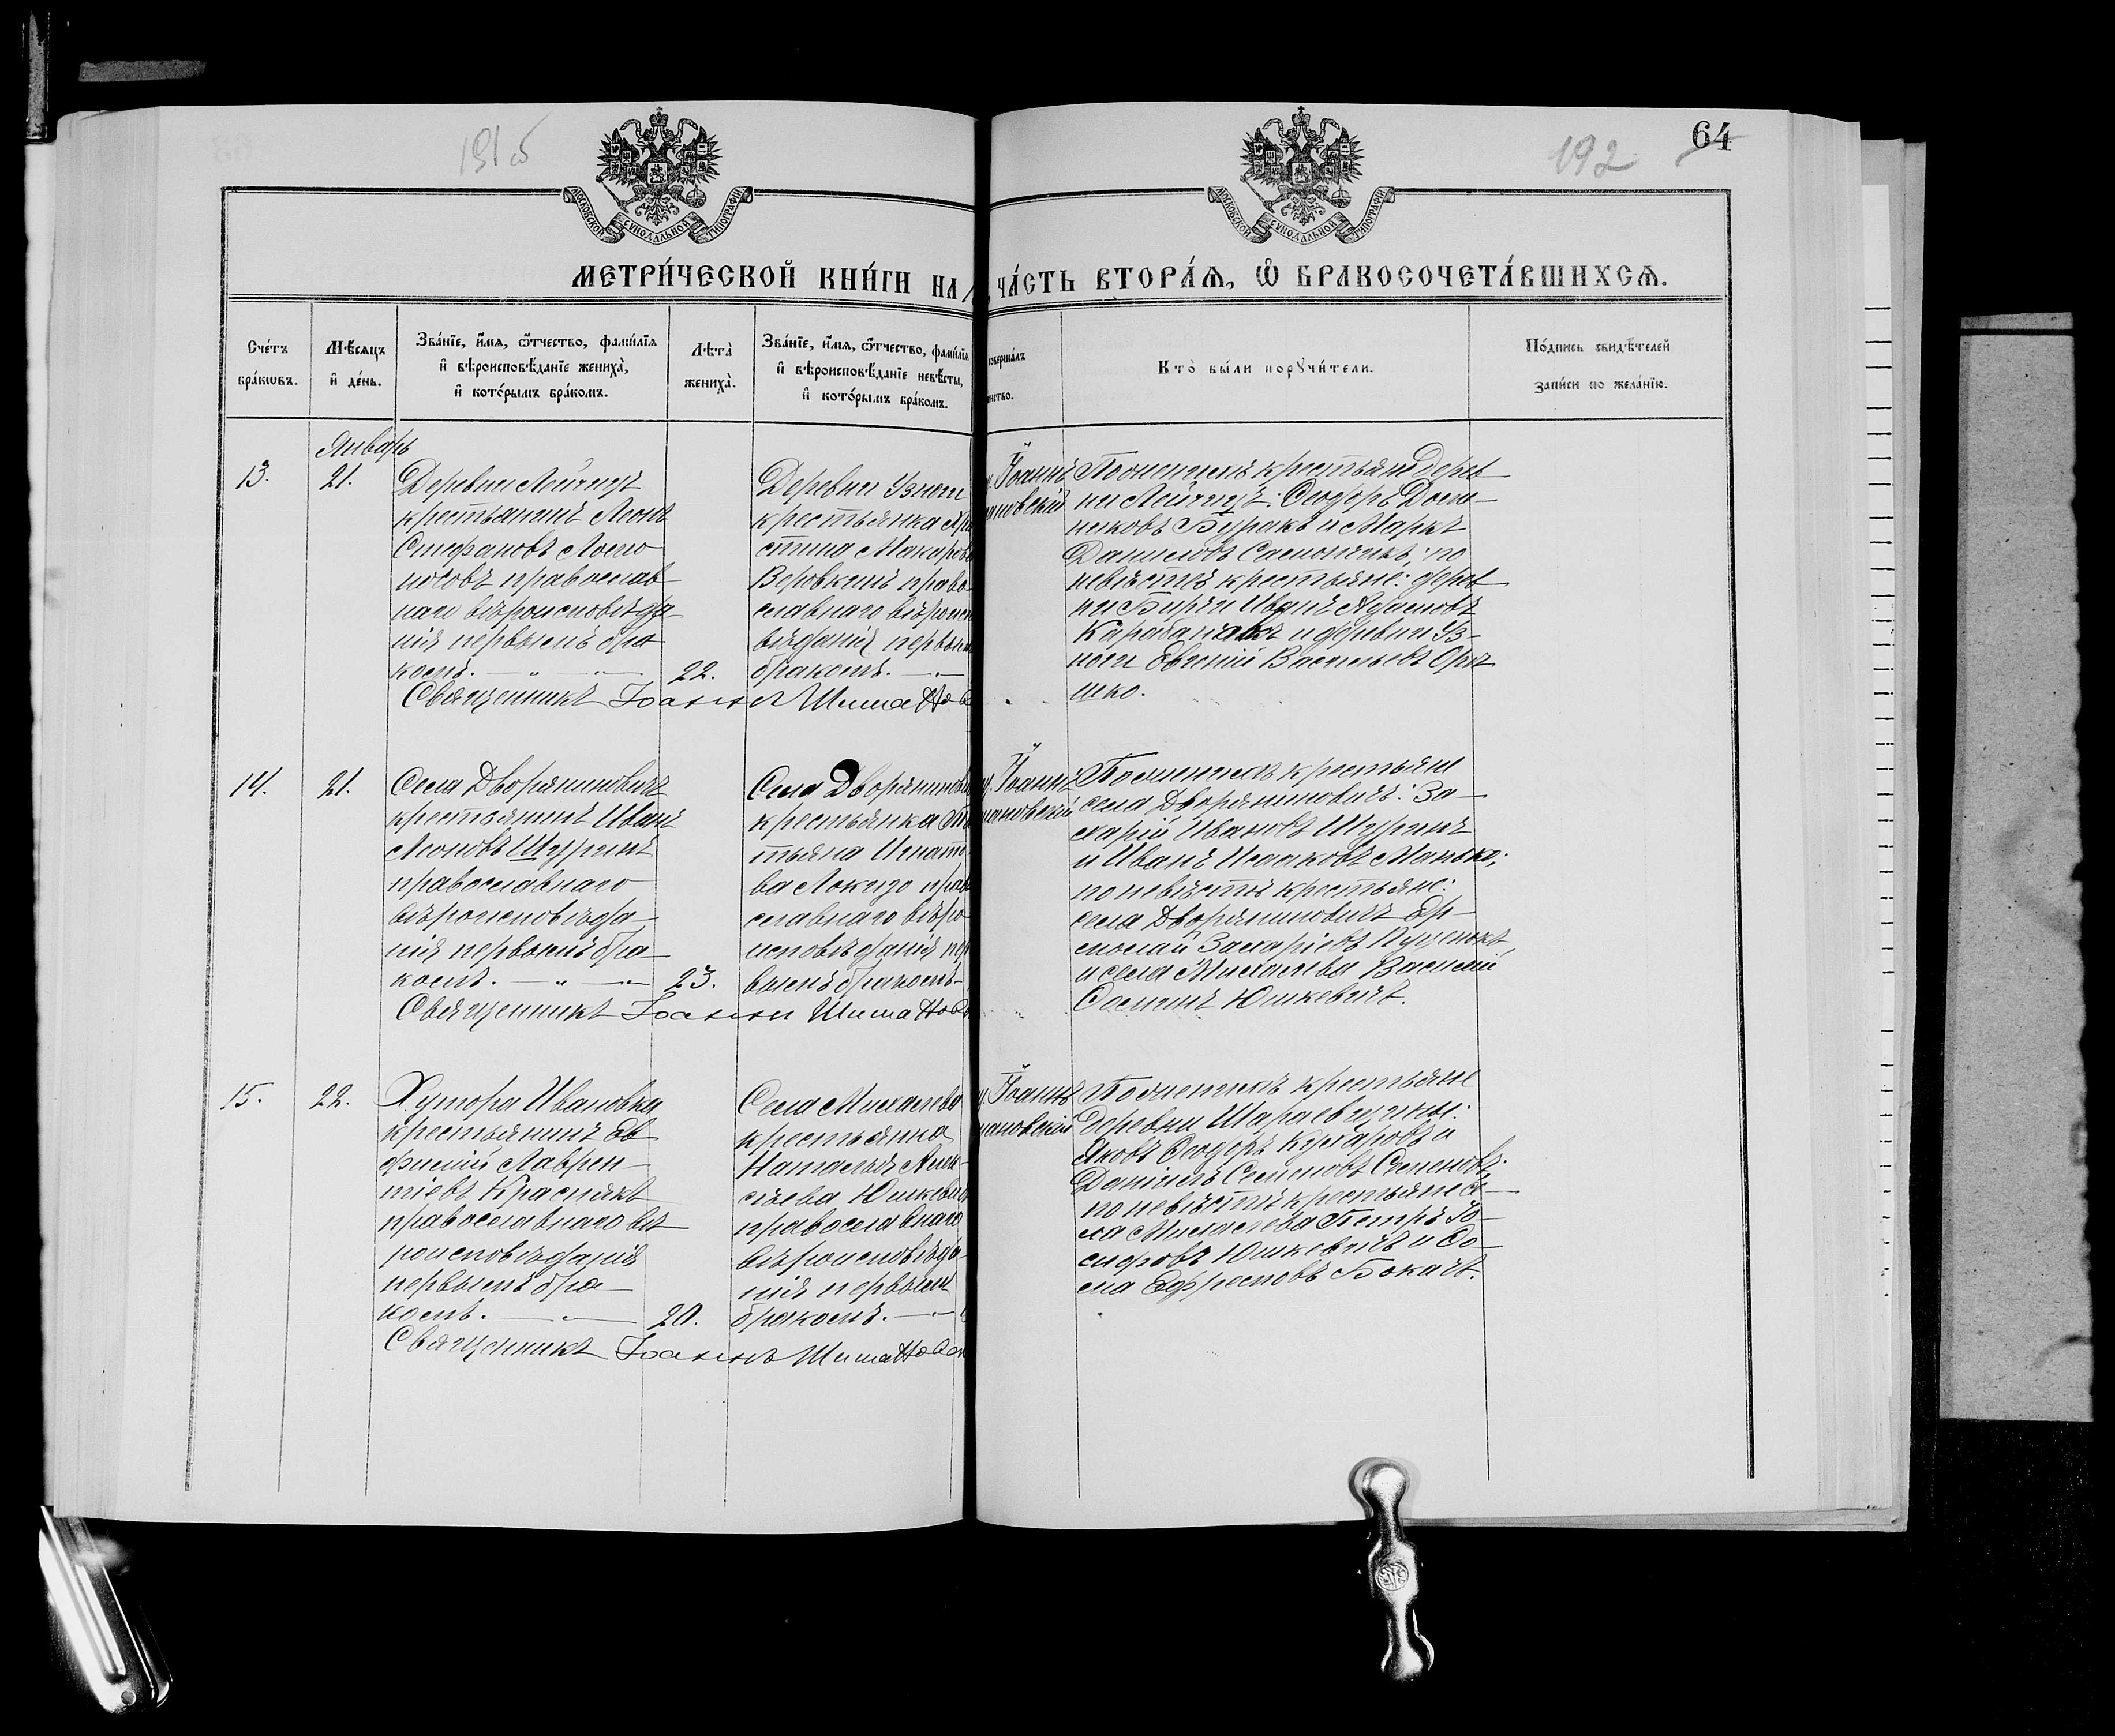 191 об
192
64
МОСКОВСКОЙ СѴНОДАЛЬНОЙ ТИПОГРАФІИ
МОСКОВСКОЙ СѴНОДАЛЬНОЙ ТИПОГРАФІИ
МЕТРИ́ЧЕСКОЙ КНИ́ГИ НА
ЧА́СТЬ ВТОРА́Ѧ, Ѡ БРАКОСОЧЕТА́ВШИХСѦ.
Сче́тъ бра́кѡвъ.
Мѣ́сяцъ и де́нь.
Зва́нїе, и́мя, ѻ҆́тчество, фами́лїя
и вѣроисповѣ́данїе жениха̀,
и кото́рымъ бра́комъ.
Лѣта̀ жениха̀.
Зва́нїе, и́мя, ѻ҆́тчество, фами́лїя
и вѣроисповѣ́данїе невѣ́сты,
и кото́рымъ бра́комъ.
соверша́лъ
Кто̀ бы́ли порꙋчи́тели.
По́дпись свидѣ́телей
за́писи по жела́нїю.
Январь
13.
21.
Деревни Лейчицъ
крестьянинъ Леонъ
Стефановъ Ломо
носовъ православ
наго вѣроисповѣда
нія первымъ бра
комъ.
22.
Деревни Узноги
крестьянка Хри
стина Макаров
Веровкинъ право
славнаго вѣроис
вѣданія первым
бракомъ.
Священникъ Іоаннъ Шима
Іоаннъ
ановскій
По женихѣ крестьяне дерев
ни Лейчицъ: Ѳеодоръ
Буракъ и Маркъ
Даниловъ по
невѣстѣ крестьяне: дерев
ни Иванъ Адамовъ
и деревни Уз
ноги Евгеній Васильевъ Ори
шко.
14.
21.
Села Дворяниновичъ
крестьянинъ Иванъ
Леоновъ
православнаго
вѣроисповѣда
нія первымъ бра
комъ.
23.
Села Дворянинови
крестьянка Та
тьяна Игнать
ва Локизо прав
славнаго вѣро
исповѣданія пер
вымъ бракомъ
Священникъ Іоаннъ Шима
Іоаннъ
мановскій
По женихѣ крестьяне
села Дворяниновичъ: За
харій Ивановъ
и Иванъ Исааковъ Манько;
по невѣстѣ крестьяне:
села Дворяниновичъ Ер
молай Захаріевъ
и села Михалева Василій
Ѳоминъ Юшкевичъ.
15.
22.
Хутора Ивановка
крестьянинъ Ев
фимій Лаврен
тіевъ Краснякъ
православнаго вѣ
роисповѣданія
первымъ бра
комъ.
20.
Села Михалева
крестьянка
Наталья Алек
сѣева Юшкеви
православнаго
вѣроисповѣда
нія первымъ
бракомъ.
Священникъ Іоаннъ Шима
Іоаннъ
мановскій
По женихѣ крестьяне
деревни
Яковъ Ѳеодоръ и
Даніилъ Семеновъ Семеновъ:
по невѣстѣ крестьяне се
ла Михалева Петръ Іо
сифовъ Юшкевичъ и Ѳо
ма Ефремовъ Бокачъ.